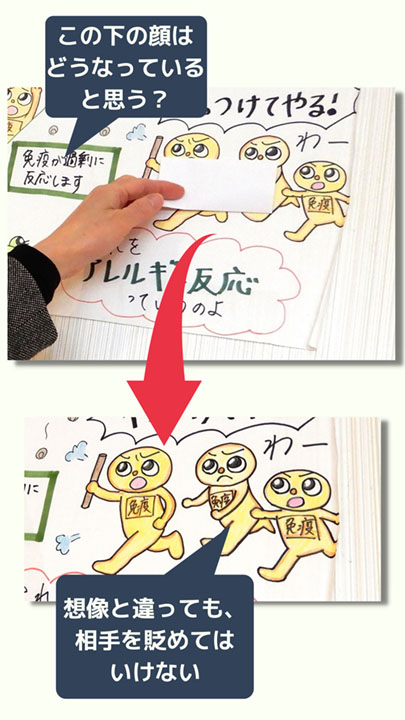 この下の顔は
どうなっている
と思う？
つけてやる!
わー
免疫が過剰に
反応します
免疫
を
アレルギー反応
っていうのよ
わー
に
ます
免疫
免疫
免疫
れ
想像と違っても、
相手を貶めては
いけない